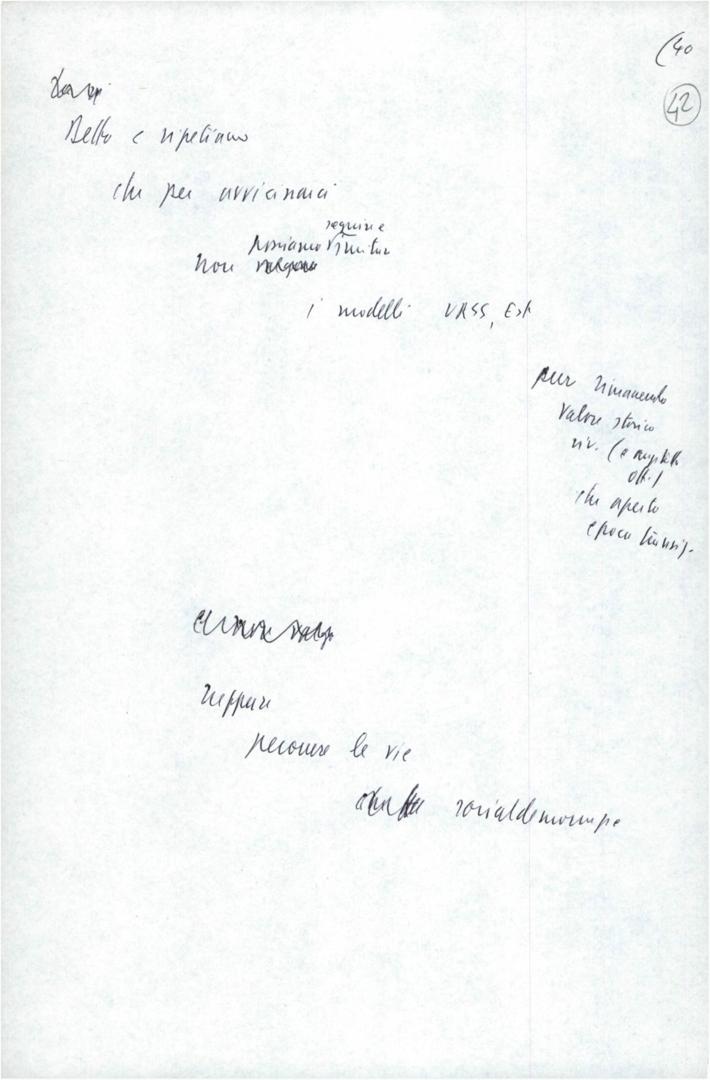 (40
42
Detto e ripetiamo
che per avvicinarci
seguire
possiamo imitar
non
i modelli URSS, Est
pur rimanendo
valore storico
riv. (
Ott.)
che aperto
epoca
neppure
percorrere le vie
socialdemocrat